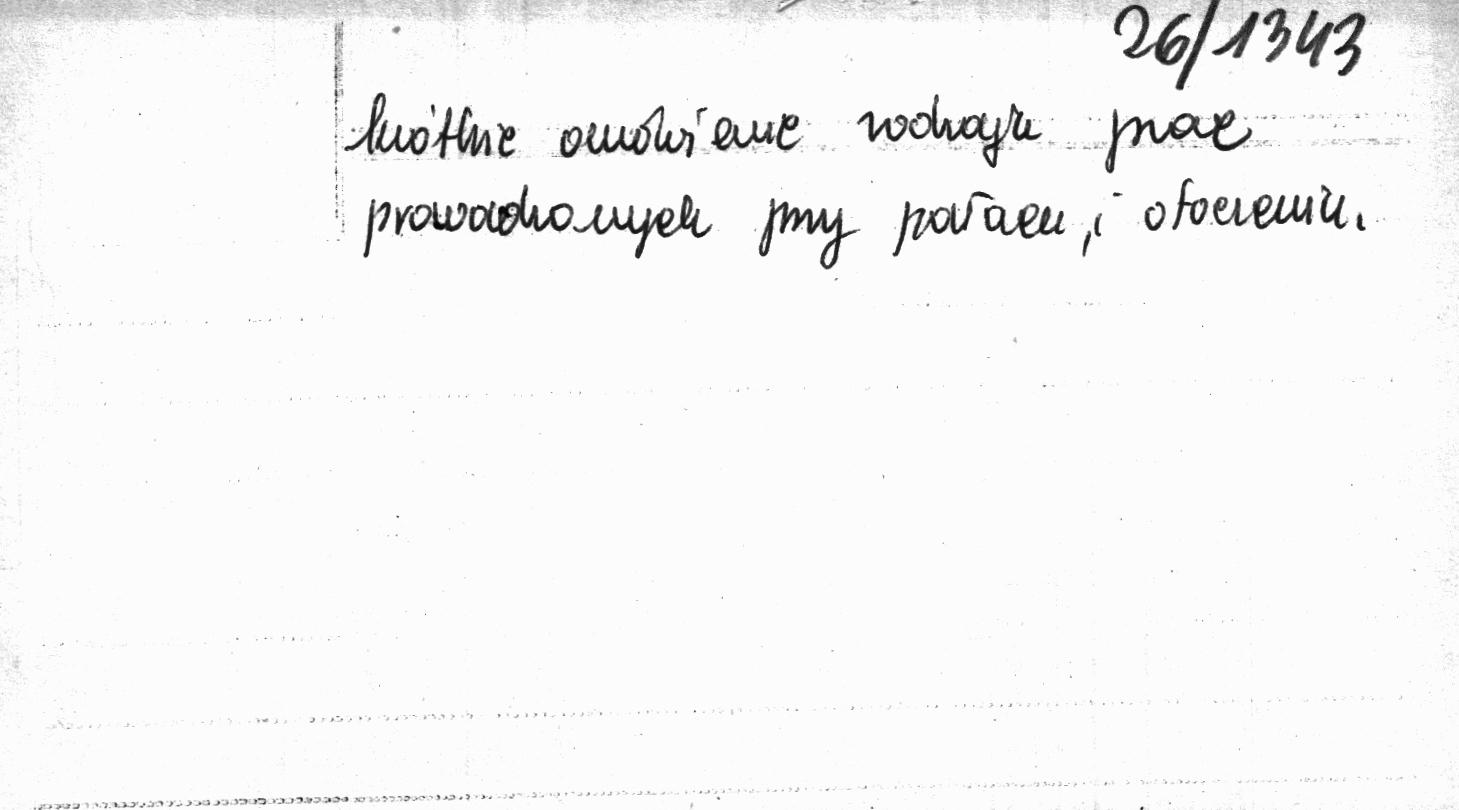 26/1343
krótkie omówienie rodzaju prac
prowadzonych przy pałacu, i otoczeniu.